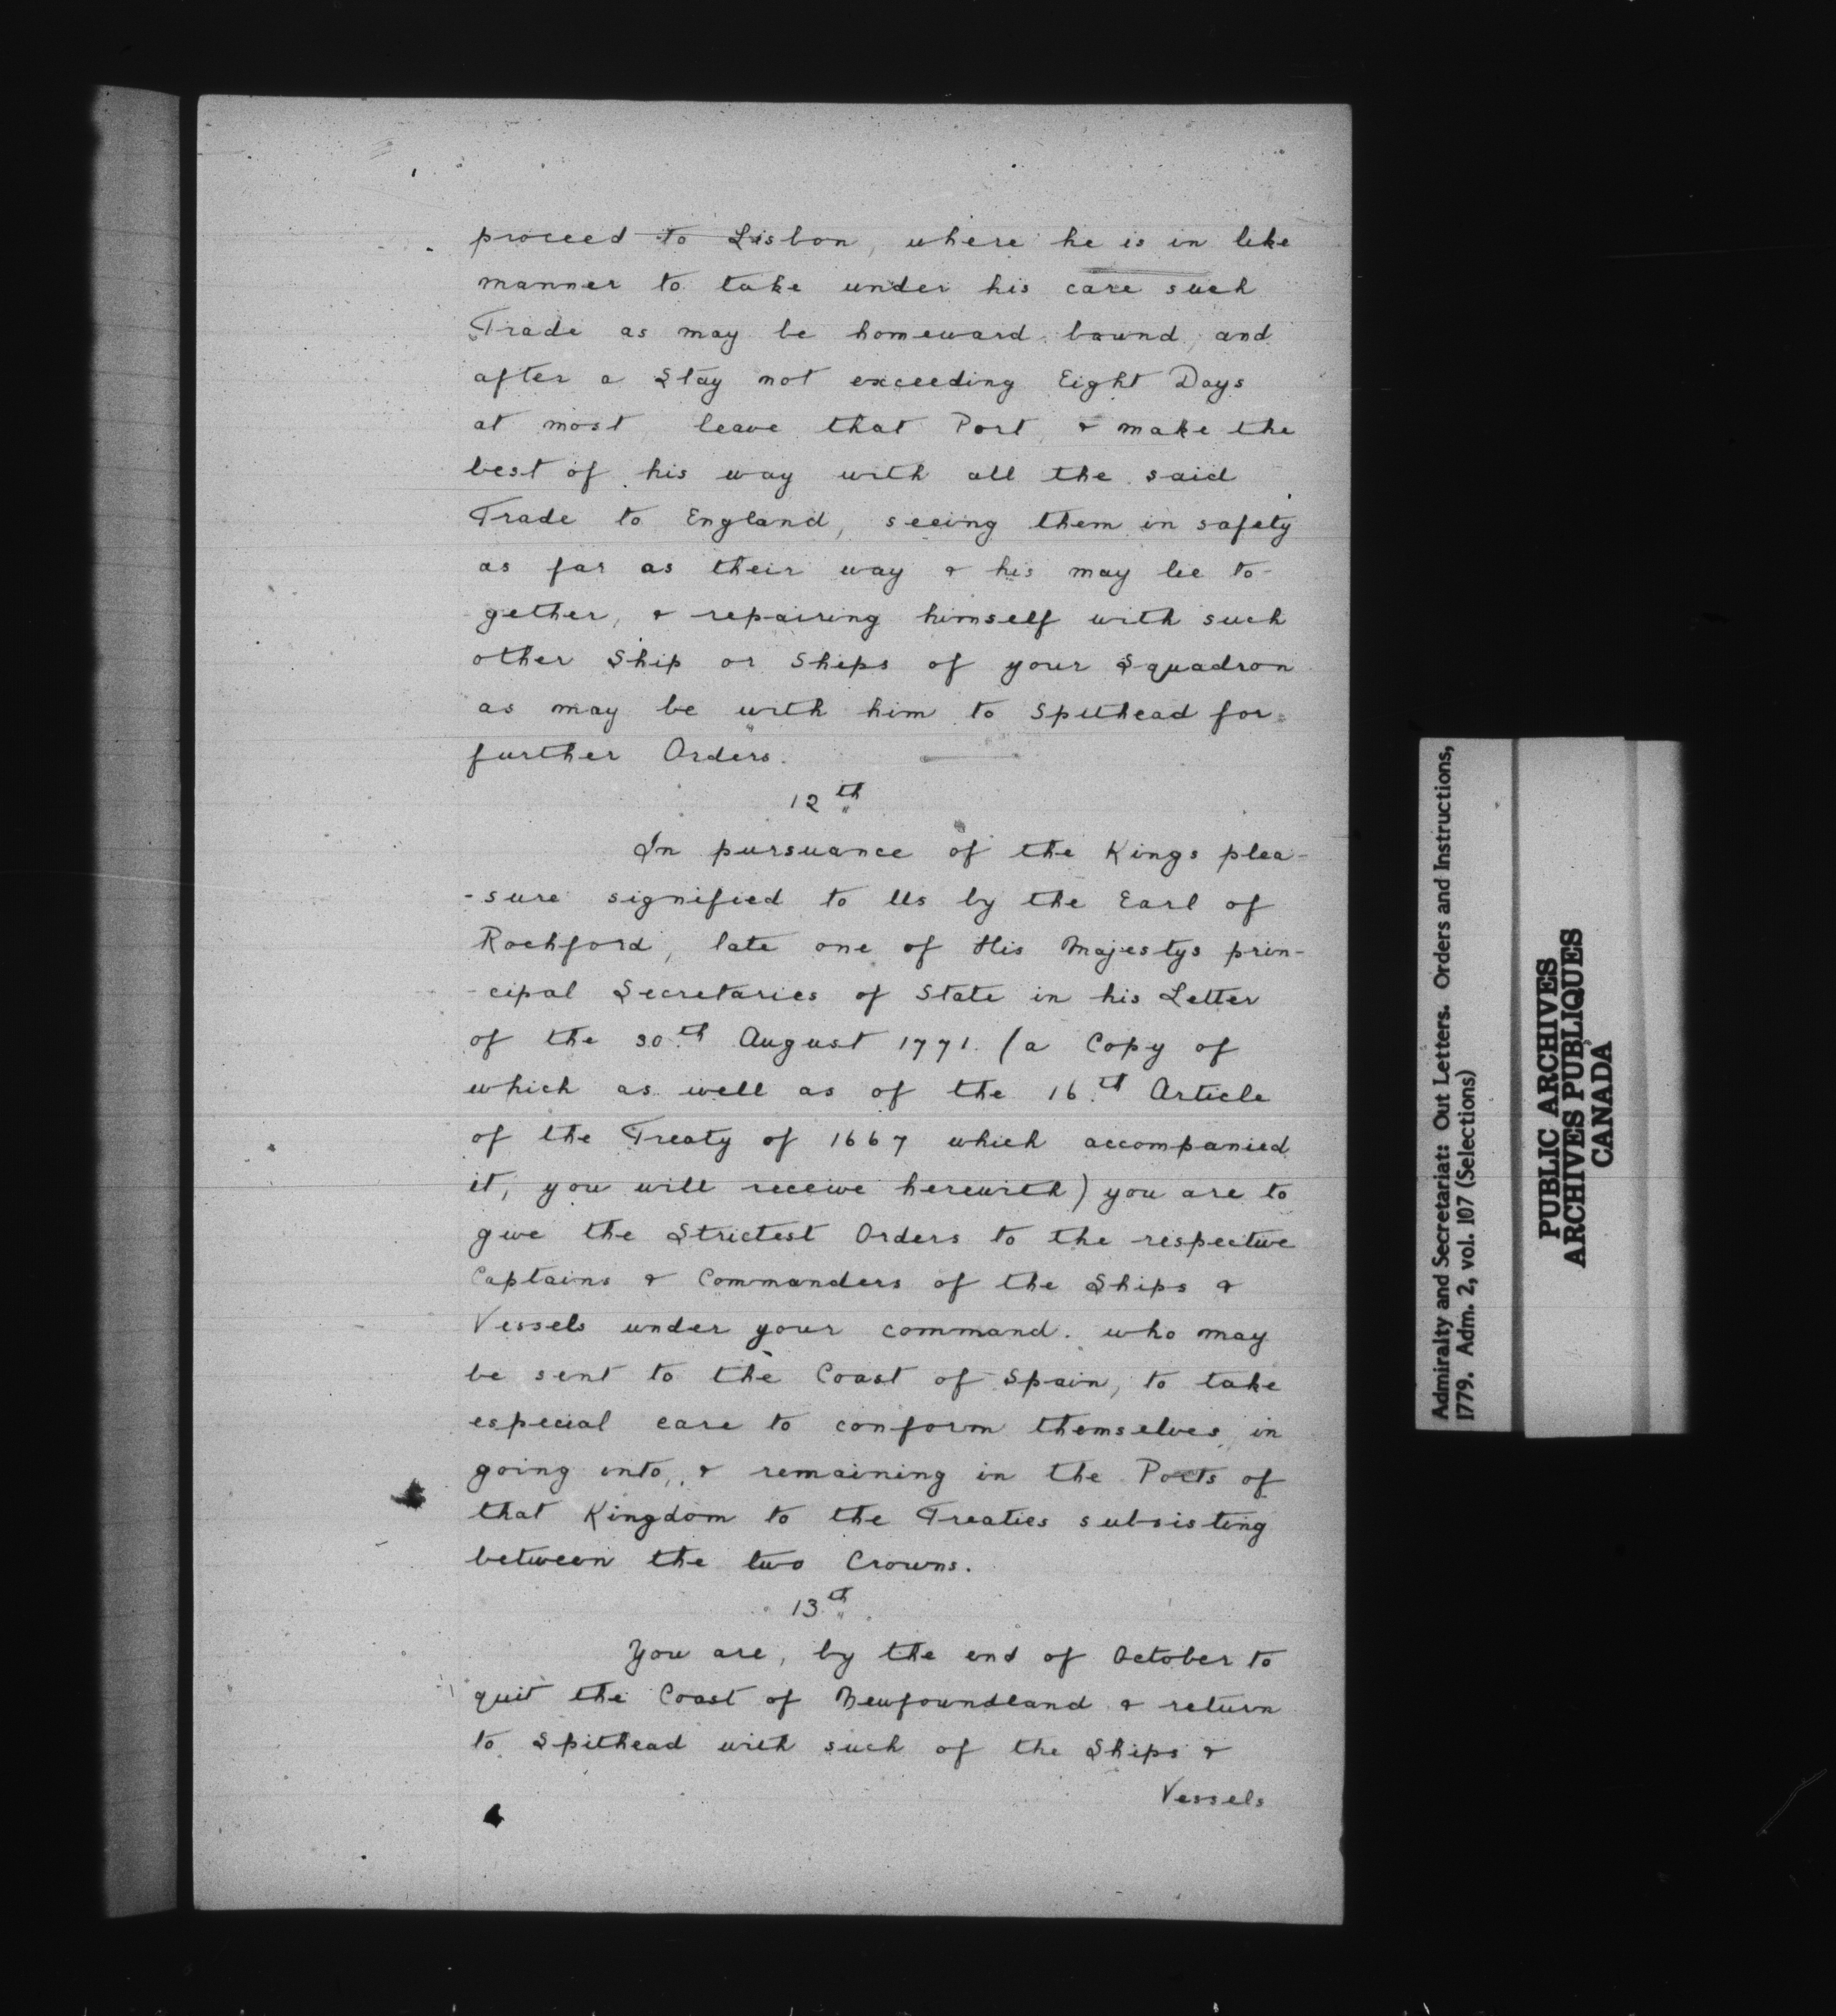 proceed to Lisbon, where he is in like
manner to take under his care such
Trade as may be homeward bound, and
after a Stay not exceeding Eight Days
at most, leave that Port, & make the
best of his way with all the said
Trade to England, seeing them in safety
as far as their way & his may lie to-
gether, & repairing himself with such
other Ship or Ships of your Squadron
as may be with him to Spithead for
further Orders.
12th
In pursuance of the Kings plea-
-sure signified to Us by the Earl of
Rochford, late one of His Majestys prin-
-cipal Secretaries of State in his Letter
of the 30th August 1771. (a Copy of
which as well as of the 16th Article
of the Treaty of 1667 which accompanied
it, you will receive herewith) you are to
give the Strictest Orders to the respective
Captains & Commanders of the Ships &
Vessels under your command. who may
be sent to the Coast of Spain, to take
especial care to conform themselves, in
going into, & remaining in the Ports of
that Kingdom to the Treaties subsisting
between the two Crowns.
13th
You are, by the end of October to
quit the Coast of Newfoundland & return
to Spithead with such of the Ships &
Vessels
Admiralty and Secretariat: Out Letters. Orders and Instructions,
1779. Adm. 2, vol. 107 (Selections)
PUBLIC ARCHIVES
ARCHIVES PUBLIQUES
CANADA